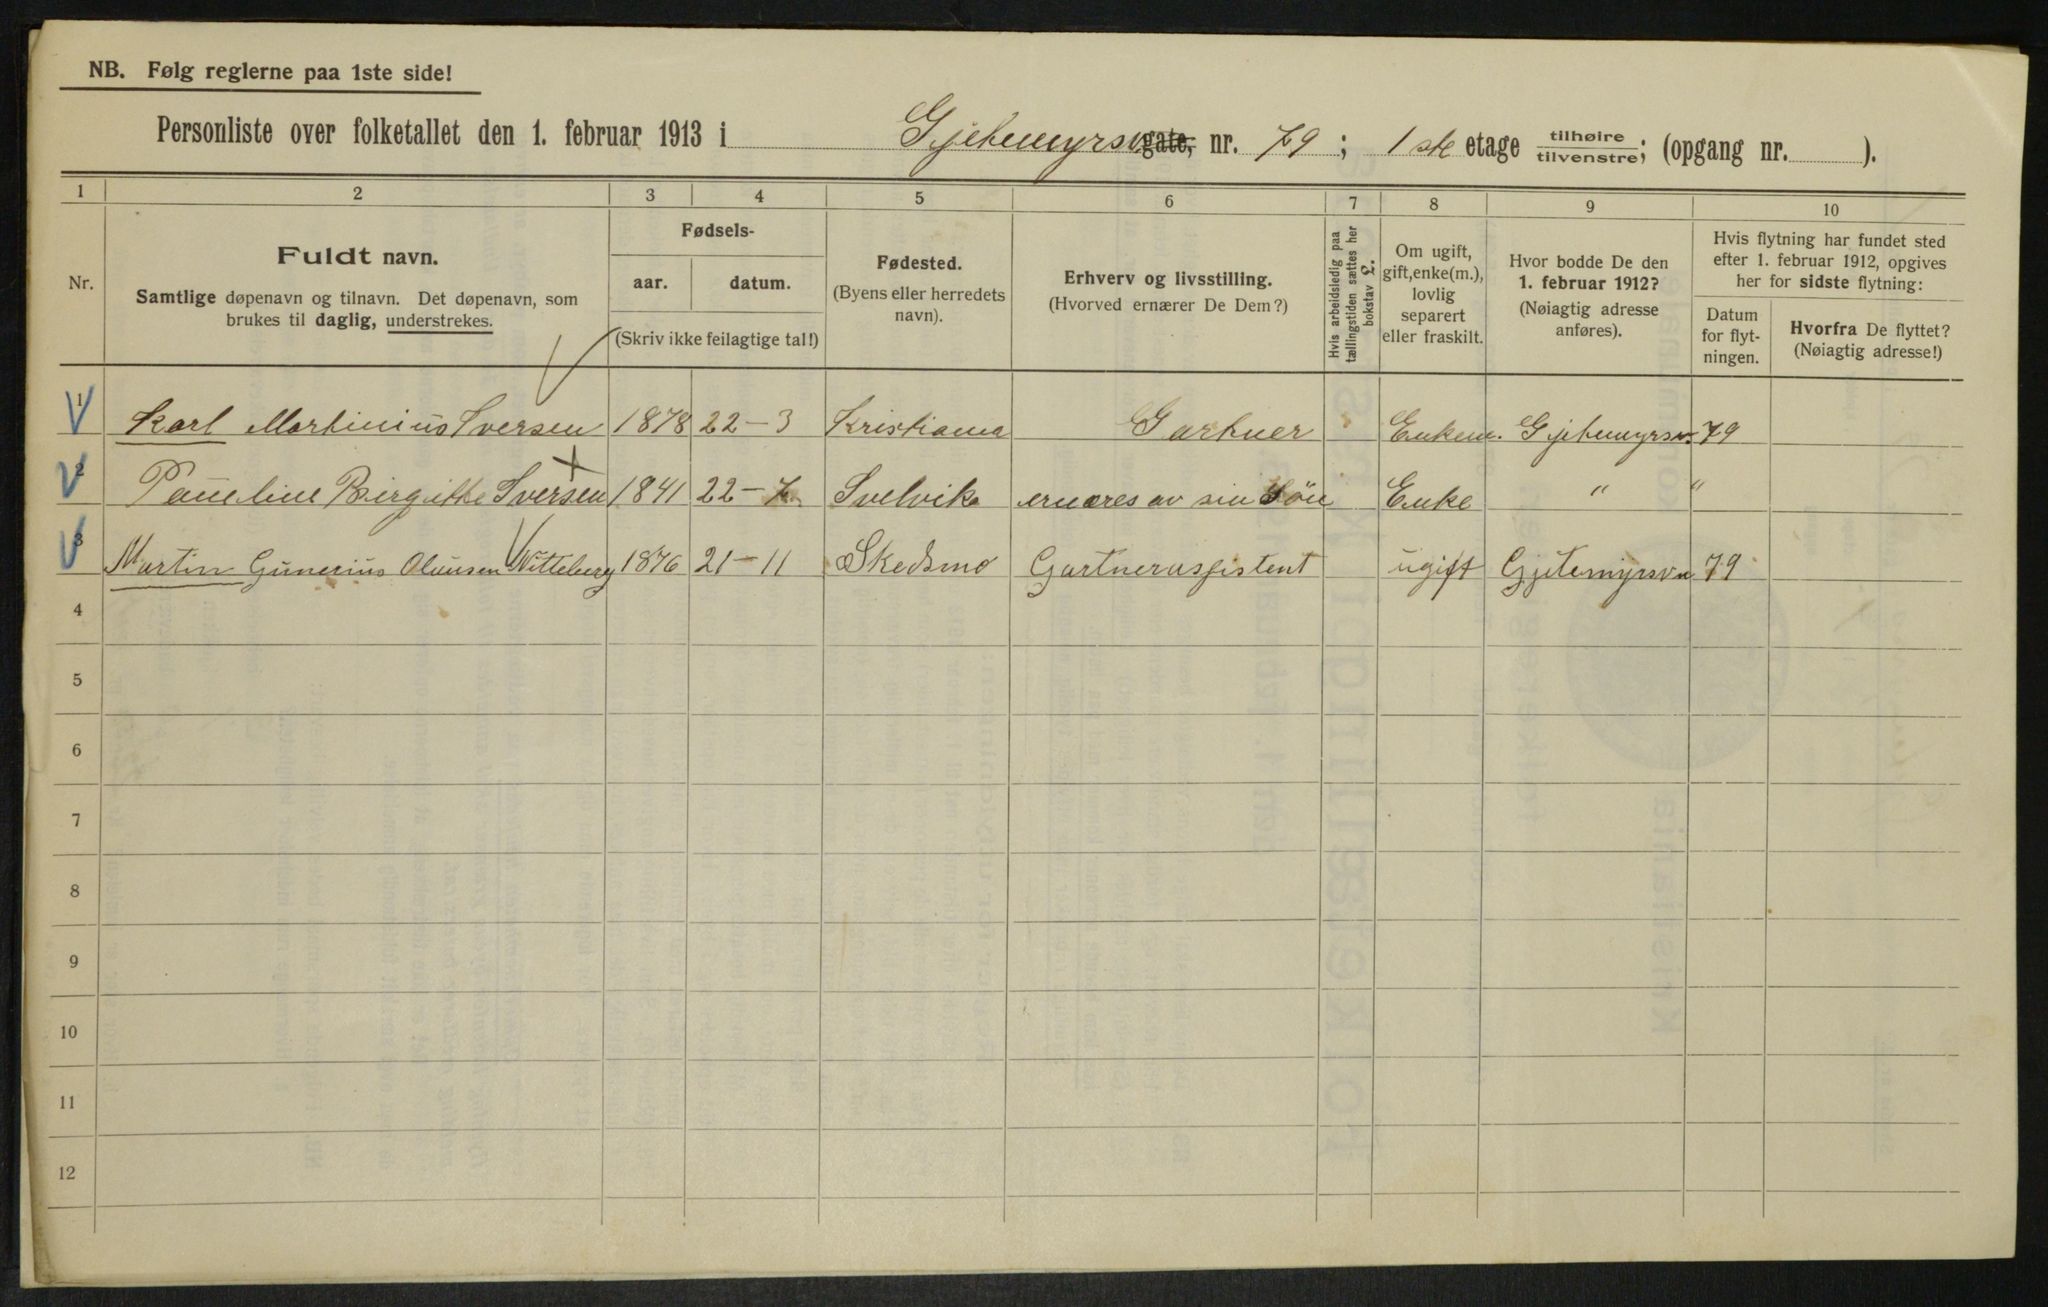 NB. Følg reglerne paa 1ste side!
Personliste over folketallet den 1. februar 1913 i Gjetemyrsv. gate, nr. 79 ; 1 ste etage tilhøire tilvenstre; (opgang nr. ).
1 2 3 4 5 6 7 8 9 10
Nr.
Fuldt navn.
Samtlige døpenavn og tilnavn. Det døpenavn, som
brukes til daglig, understrekes.
Fødsels-
aar. datum.
(Skriv ikke feilagtige tal!)
Fødested.
(Byens eller herredets
navn).
Erhverv og livsstilling.
(Hvorved ernærer De Dem?)
Hvis arbeidsledig paa
tællingstiden sættes her
bokstav L.
Om ugift,
gift, enke(m.),
lovlig
separert
eller fraskilt.
Hvor bodde De den
1. februar 1912?
(Nøiagtig adresse
anføres).
Hvis flytning har fundet sted
efter 1. februar 1912, opgives
her for sidste flytning:
Datum
for flyt-
ningen.
Hvorfra De flyttet?
(Nøiagtig adresse!)
1 Karl Martinius Iversen 1878 22-3 Kristiania Gartner Enkem. Gjetemyrsv. 79
2 Paueline Birgitte Iversen 1841 22-7 Svelvik ernæres av sin Søn Enke " "
3 Martin Gunerius Olausen Nitteberg 1876 21-11 Skedsmo Gartnerassistent ugift Gjetemyrsvn 79
4
5
6
7
8
9
10
11
12